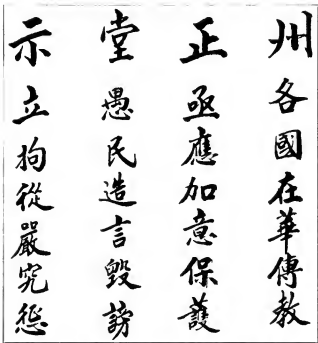 州各國在華傳教
正亟應加意保護
堂愚民造言毀謗
示立拘從嚴究懲